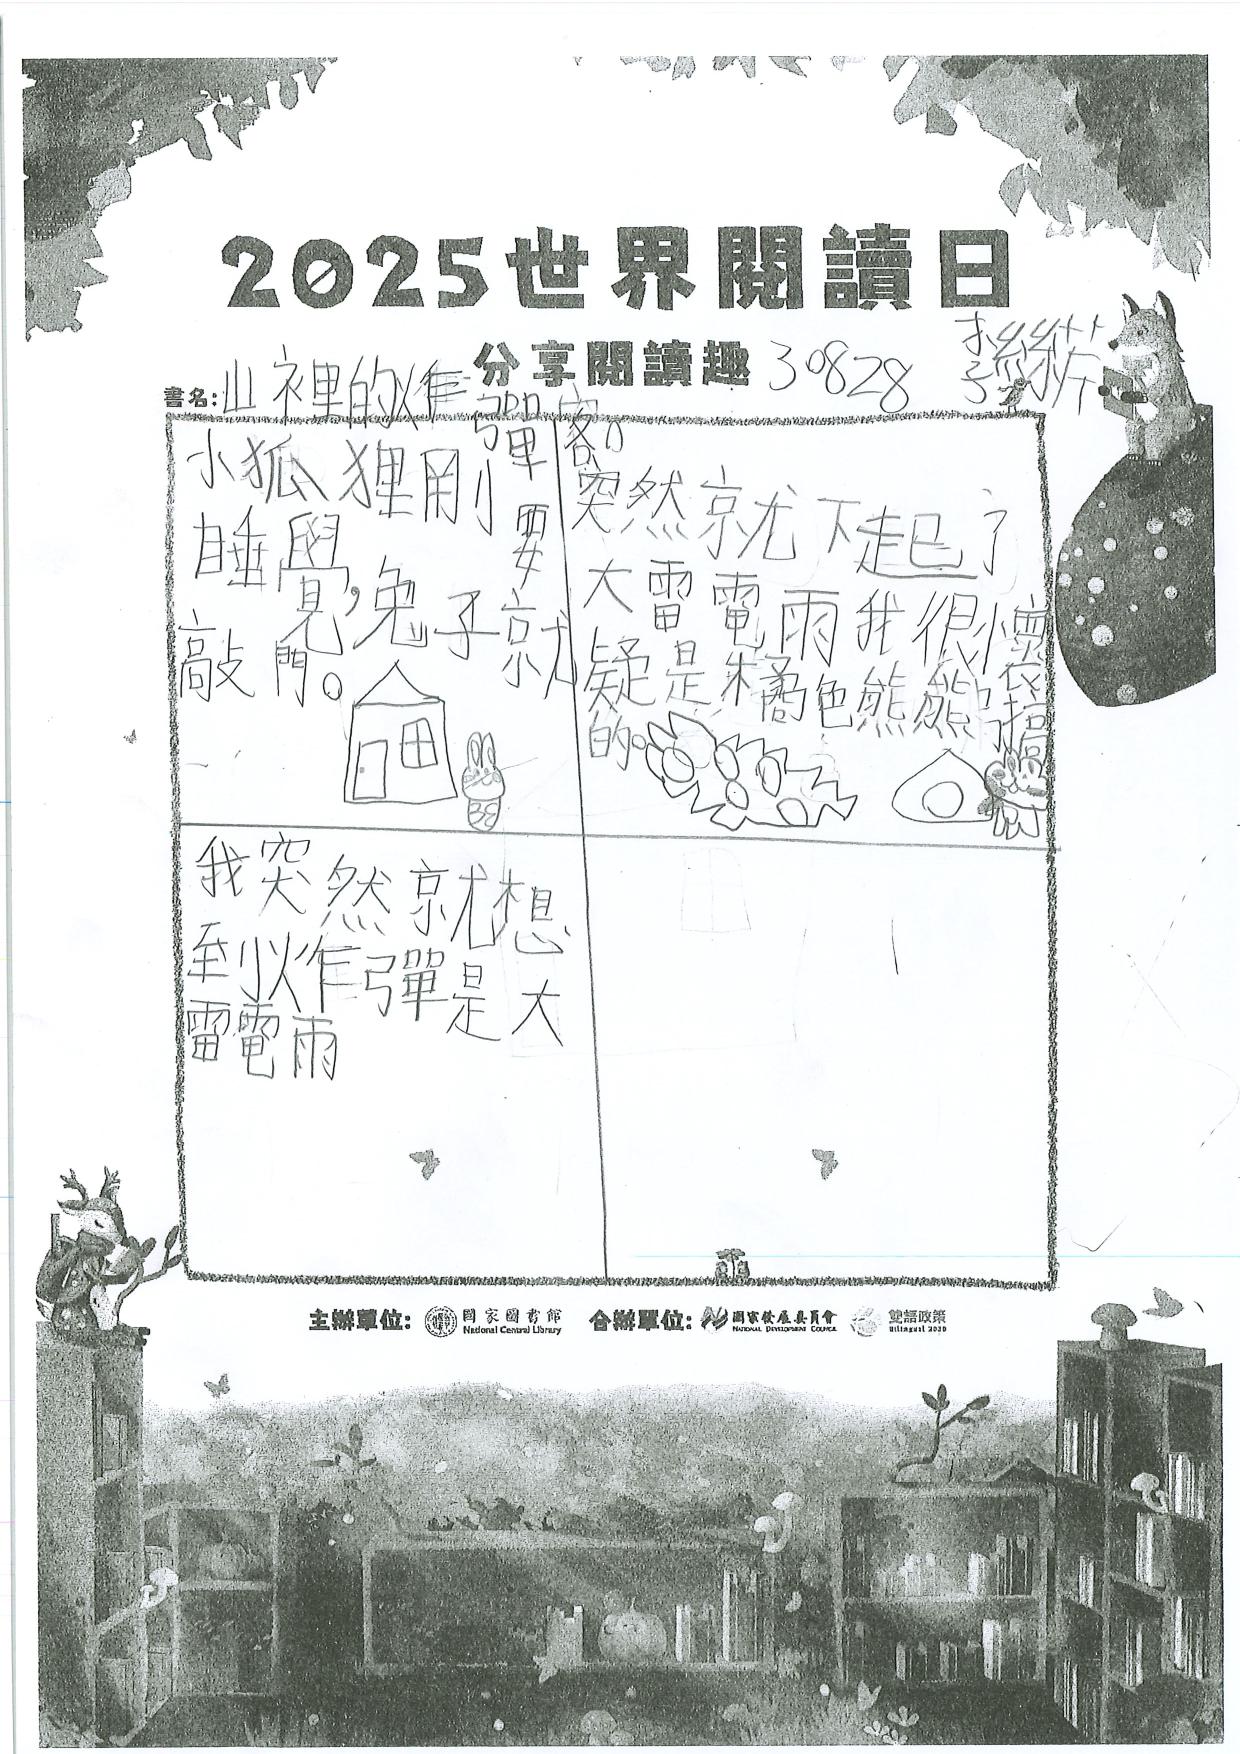 2025世界閱讀日
分享閱讀趣 30828
書名:山裡的炸彈客。
小狐狸剛要
睡覺,兔子就
敲門。
突然就下起了
大雷電雨我很懷
疑是橘色熊熊搞
的。
我突然就想
至少炸彈是大
雷電雨
主辦單位: 國家圖書館 合辦單位: 國家發展委員會 雙語政策
National Central Library NATIONAL DEVELOPMENT COUNCIL Bilingual 2030